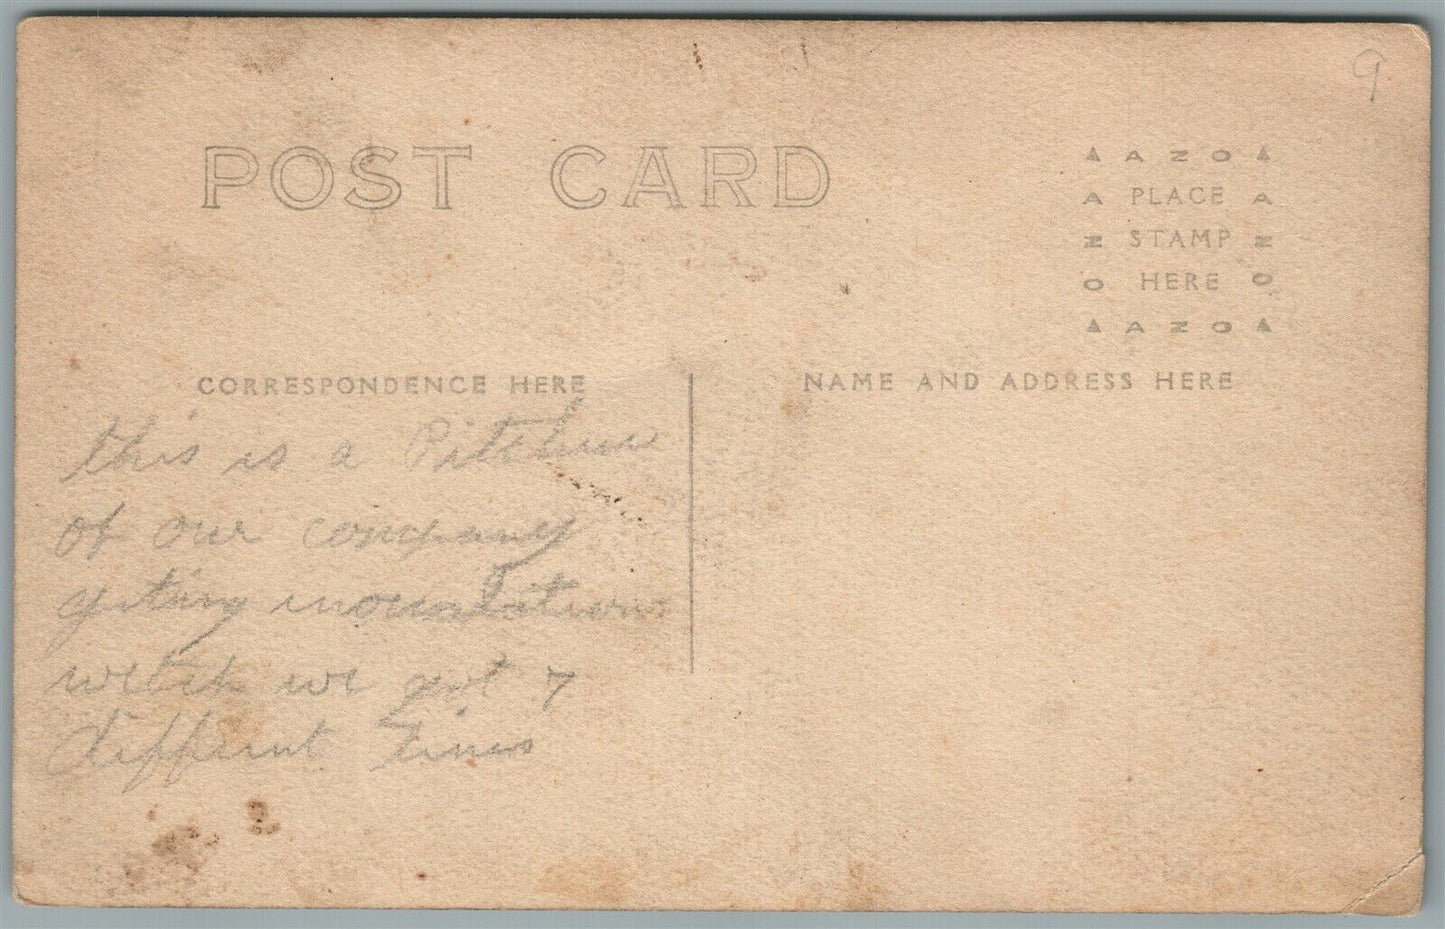 9
POST CARD
AZO
A PLACE A
Z STAMP Z
O HERE O
AZO
CORRESPONDENCE HERE
NAME AND ADDRESS HERE
this is a
of our company
geting inoculations
witch we got 7
different Times